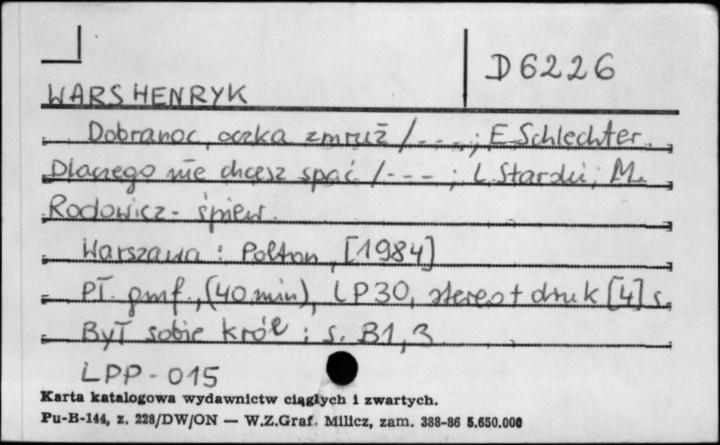 D6226
WARS HENRYK
Dobranoc, oczka zmruż /---; E. Schlechter.
Dlaczego nie chcesz spać /---; L. Starski, M.
Rodowicz - śpiew.
Warszawa : Polton, [1984]
Pł. gmf., (40 min), LP30, stereo + druk [4] s.
Był sobie król ; s. B1,3
LPP-015
Karta katalogowa wydawnictw ciągłych i zwartych.
Pu-B-144, z. 228/DW/ON — W.Z.Graf. Milicz, zam. 388-86 5.650.000